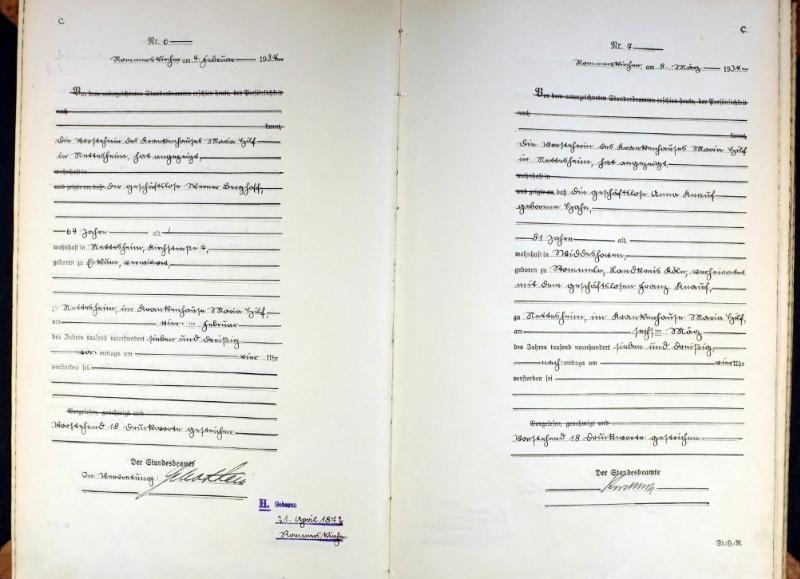 C.
Nr. 6
Rommerskirchen am 4. Februar 1937
Vor dem unterzeichneten Standesbeamten erschien heute, der Persönlichkeit
nach
kannt,
Die Vorsteherin des Krankenhauses Maria Hilf
in Nettesheim, hat angezeigt,
wohnhaft in
und zeigte an, daß der geschäftslose Werner Berghoff,
64 Jahre alt
wohnhaft in Nettesheim, Kirchstraße 7,
geboren zu verwitwet,
zu Nettesheim, im Krankenhause Maria Hilf,
am vier ten Februar
des Jahres tausend neunhundert sieben und dreißig
vor mittags um vier Uhr
verstorben sei
Vorgelesen, genehmigt und
Vorstehend 18 Druckworte gestrichen
Der Standesbeamte
In Vertretung:
H. Geboren
21. April 1872
Rommerskirchen
C.
Nr. 7
Rommerskirchen, am 8. März 1937
Vor dem unterzeichneten Standesbeamten erschien heute, der Persönlichkeit
nach
kannt,
Die Vorsteherin des Krankenhauses Maria Hilf
in Nettesheim, hat angezeigt,
wohnhaft in
und zeigte an, daß die geschäftslose Anna Knauf
geborene Hahn,
81 Jahre alt
wohnhaft in Widdeshoven,
geboren zu Stommeln, Landkreis Köln, verheiratet
mit dem geschäftslosen Franz Knauf,
zu Nettesheim, im Krankenhause Maria Hilf,
am sechs ten März
des Jahres tausend neunhundert sieben und dreißig,
nach mittags um vier Uhr
verstorben sei
Vorgelesen, genehmigt und
Vorstehend 18 Druckworte gestrichen.
Der Standesbeamte
St.B.N.